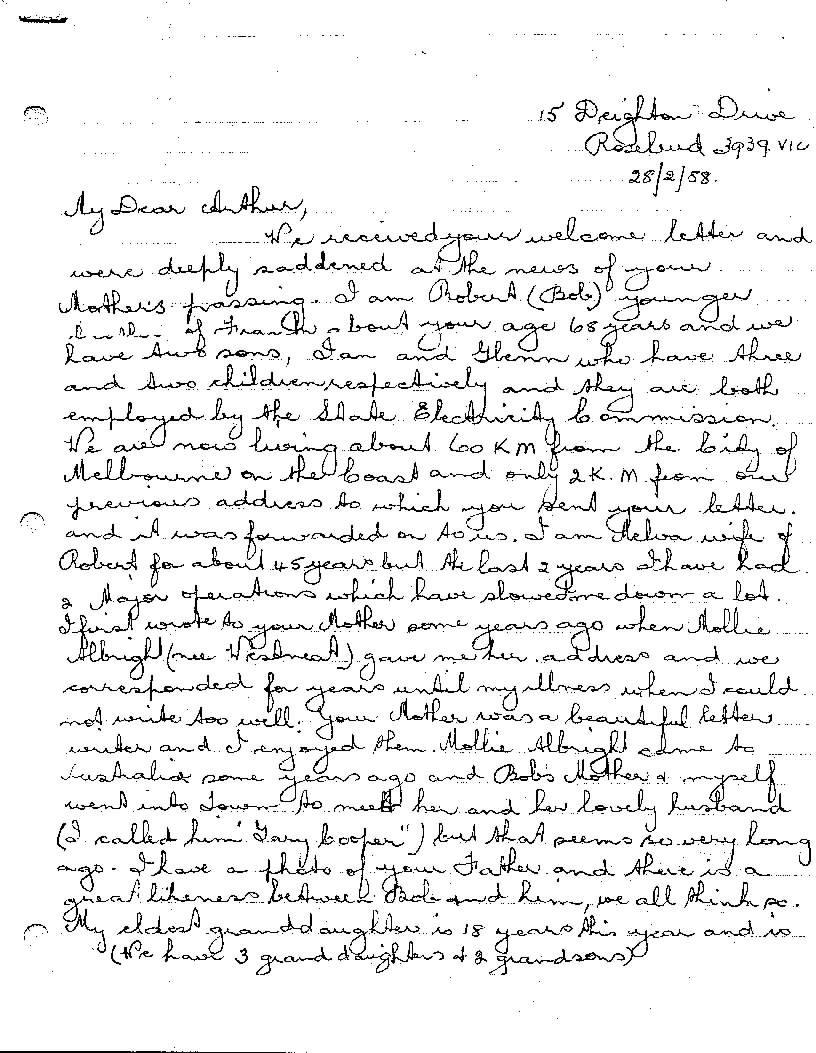 15 Deighton Drive
Rosebud 3939 VIC
28/2/88.
My Dear Arthur,
We received your welcome letter and
were deeply saddened at the news of your
Mother's passing. I am Robert (Bob) younger
brother of Frank about your age 68 years and we
have two sons, Ian and Glenn who have three
and two children respectively and they are both
employed by the State Electricity Commission.
We are now living about 60 KM from the City of
Melbourne on the Coast and only 2 K.M from our
previous address to which you sent your letter.
and it was forwarded on to us. I am Melva wife of
Robert for about 45 years but the last 2 years I have had
2 Major operations which have slowed me down a lot.
I first wrote to your Mother some years ago when Mollie
Albright (nee Westneat) gave me her address and we
corresponded for years until my illness when I could
not write too well. Your Mother was a beautiful letter
writer and I enjoyed them Mollie Albright came to
Australia some years ago and Bob's Mother & myself
went into Town to meet her and her lovely husband
(I called him "Gary Cooper") but that seems so very long
ago. I have a photo of your Father and there is a
great likeness between Bob and him, we all think so.
My eldest granddaughter is 18 years this year and is
(We have 3 grand daughters & 2 grandsons)